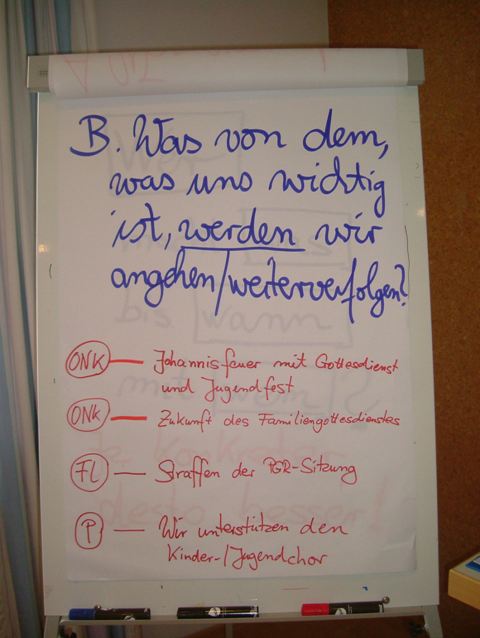 B. Was von dem,
was uns wichtig
ist, werden wir
angehen/weiterverfolgen?
ONK — Johannisfeuer mit Gottesdienst
und Jugendfest
ONK — Zukunft des Familiengottesdienstes
FL — Straffen der PGR-Sitzung
P — Wir unterstützen den
Kinder-/Jugendchor